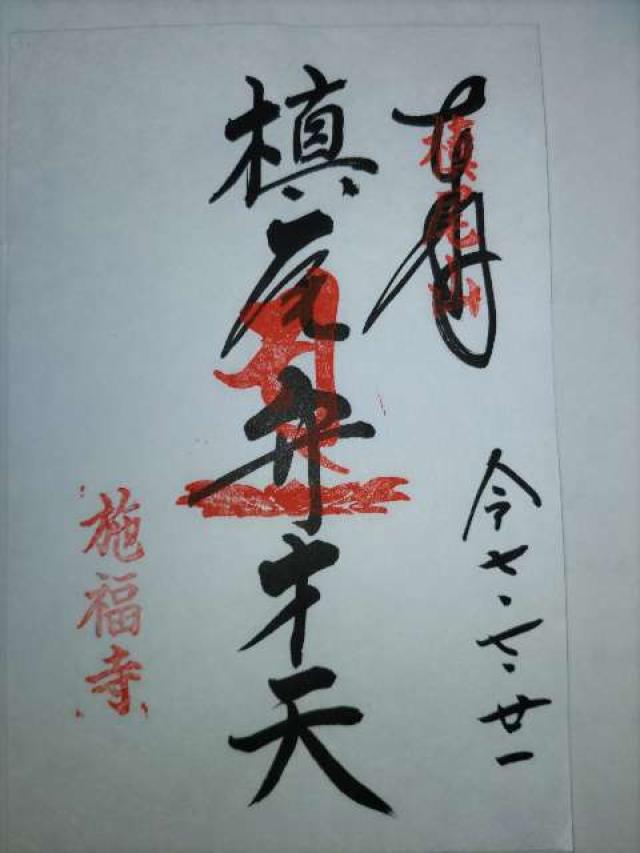 奉拝
槙尾山
令七.七.廿一
槙尾弁才天
施福寺